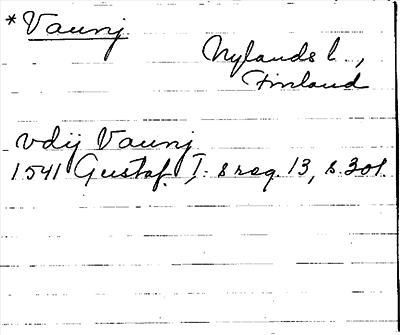 *Vaunj
Nylands l.,
Finland
vdij Vaunj
1541 Gustaf I:s reg. 13, s. 301.